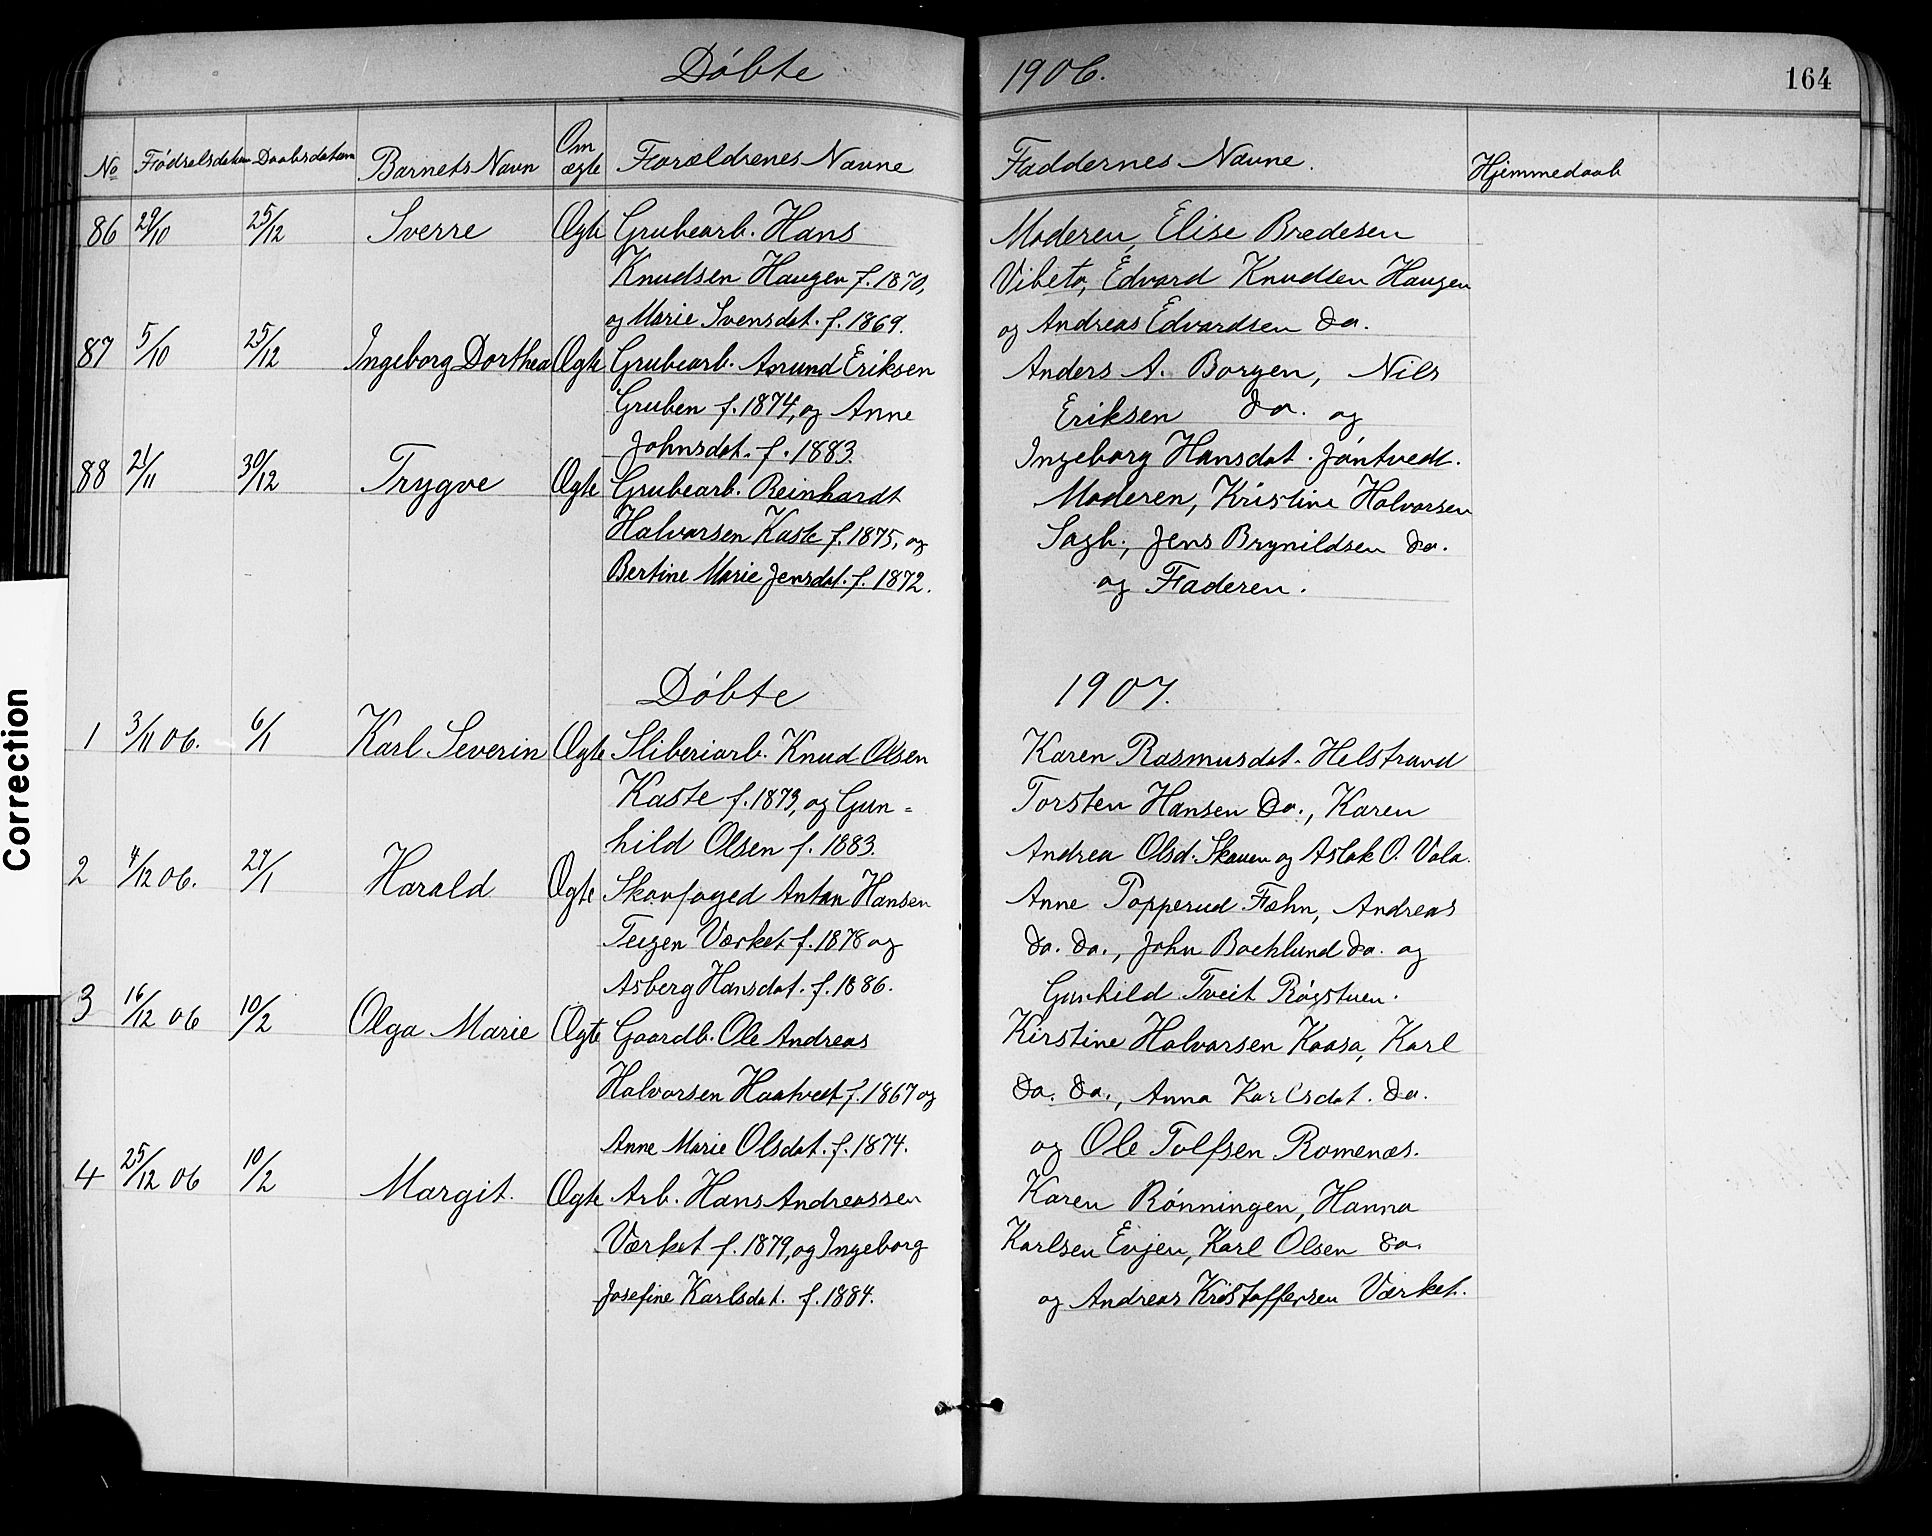 Døbte 1906. 164
No Fødselsdatum Daabsdatum Barnets Navn Om ægte Forældrenes Navne Faddernes Navne. Hjemmedaab
86 29/10 25/12 Sverre Ægte Grubearb. Hans Moderen, Elise Bredesen
Knudsen Haugen f. 1870, Vibeto, Edvard Knudsen Haugen
og Marie Svensdat. f. 1869. og Andreas Edvardsen do.
87 5/10 25/12 Ingeborg Dorthea Ægte Grubearb. Asmund Eriksen Anders A. Borgen, Nils
Gruben f. 1874, og Anne Eriksen do. og
Johnsdat. f. 1883. Ingeborg Hansdat. Jøntvedt.
88 21/11 30/12 Trygve Ægte Grubearb. Reinhardt Moderen, Kristine Halvorsen
Halvorsen Kaste f. 1875, og Sagh., Jens Brynildsen do.
Bertine Marie Jensdat. f. 1872. og Faderen.
Døbte 1907.
1 3/11 06. 6/1 Karl Severin Ægte Sliberiarb. Knud Olsen Karen Rasmusdat. Helstrand
Kaste f. 1873, og Gun= Torsten Hansen do., Karen
hild Olsen f. 1883. Andrea Olsd. Skauen og Aslak O. Vala.
2 4/12 06. 27/1 Harald Ægte Skovfoged Anton Hansen Anne Popperud Fæhn, Andreas
Teigen Værket f. 1878 og do. do., John Boehlund do. og
Asberg Hansdat. f. 1886. Gunhild Tveit Røgstuen.
3 16/12 06 10/2 Olga Marie Ægte Gaardb. Ole Andreas Kirstine Halvorsen Kaasa, Karl
Halvorsen Haatvedt f. 1867 og do. do., Anna Karlsdat. do.
Anne Marie Olsdat. f. 1874. og Ole Tolfsen Romenæs.
4 25/12 06 10/2 Margit. Ægte Arb. Hans Andreassen Karen Rønningen, Hanna
Værket f. 1879, og Ingeborg Karlsen Evjen, Karl Olsen do.
Josefine Karlsdat. f. 1884. og Andreas Kristoffersen Værket.
Correction